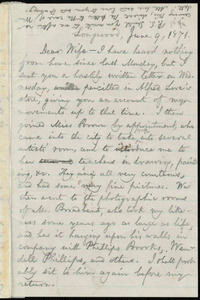 Longwood, June 9, 1871.
Dear Wife - I have heard nothing
from you since last Monday, but I
sent you a hastily written letter on Wed-
nesday, penciled in Alfred Love's
store, giving you an account of my
movements up to that time. I then
joined Miss Brown by appointment, who
came into the city to take me several
artists' rooms, and to introduce me to
her teachers in drawing, paint-
ing, &c. They and all very courteous,
and had some very fine pictures. We
then went to the photographic rooms
of Mr. Broadbent, who took my like-
ness some years ago as large as life,
and has it hanging upon his walls in
company with Phillips Brooks, Wen-
dell Phillips, and others. I shall prob-
ably sit to him again before my
return.